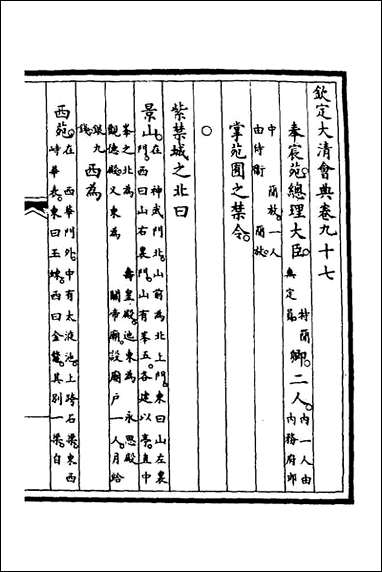 欽定大清會典卷九十七
奉宸苑。總理大臣。特簡無定員。卿二人。內一人由內務府郎
中簡放一人由侍衛簡放。
掌苑囿之禁令。
○
紫禁城之北曰
景山。在神武門北。山前為北上門。東曰山左裏
門。西曰山右裏門。山有峯五。各建以亭。直中
峯之北為壽皇殿。迤東為永思殿
觀德殿。又東為關帝廟。設廟戶一人。月給
銀九錢。西為
西苑。在西華門外。中有太液池。上跨石梁。東西
峙華表。東曰玉蝀。西曰金鼇。其別一梁。自